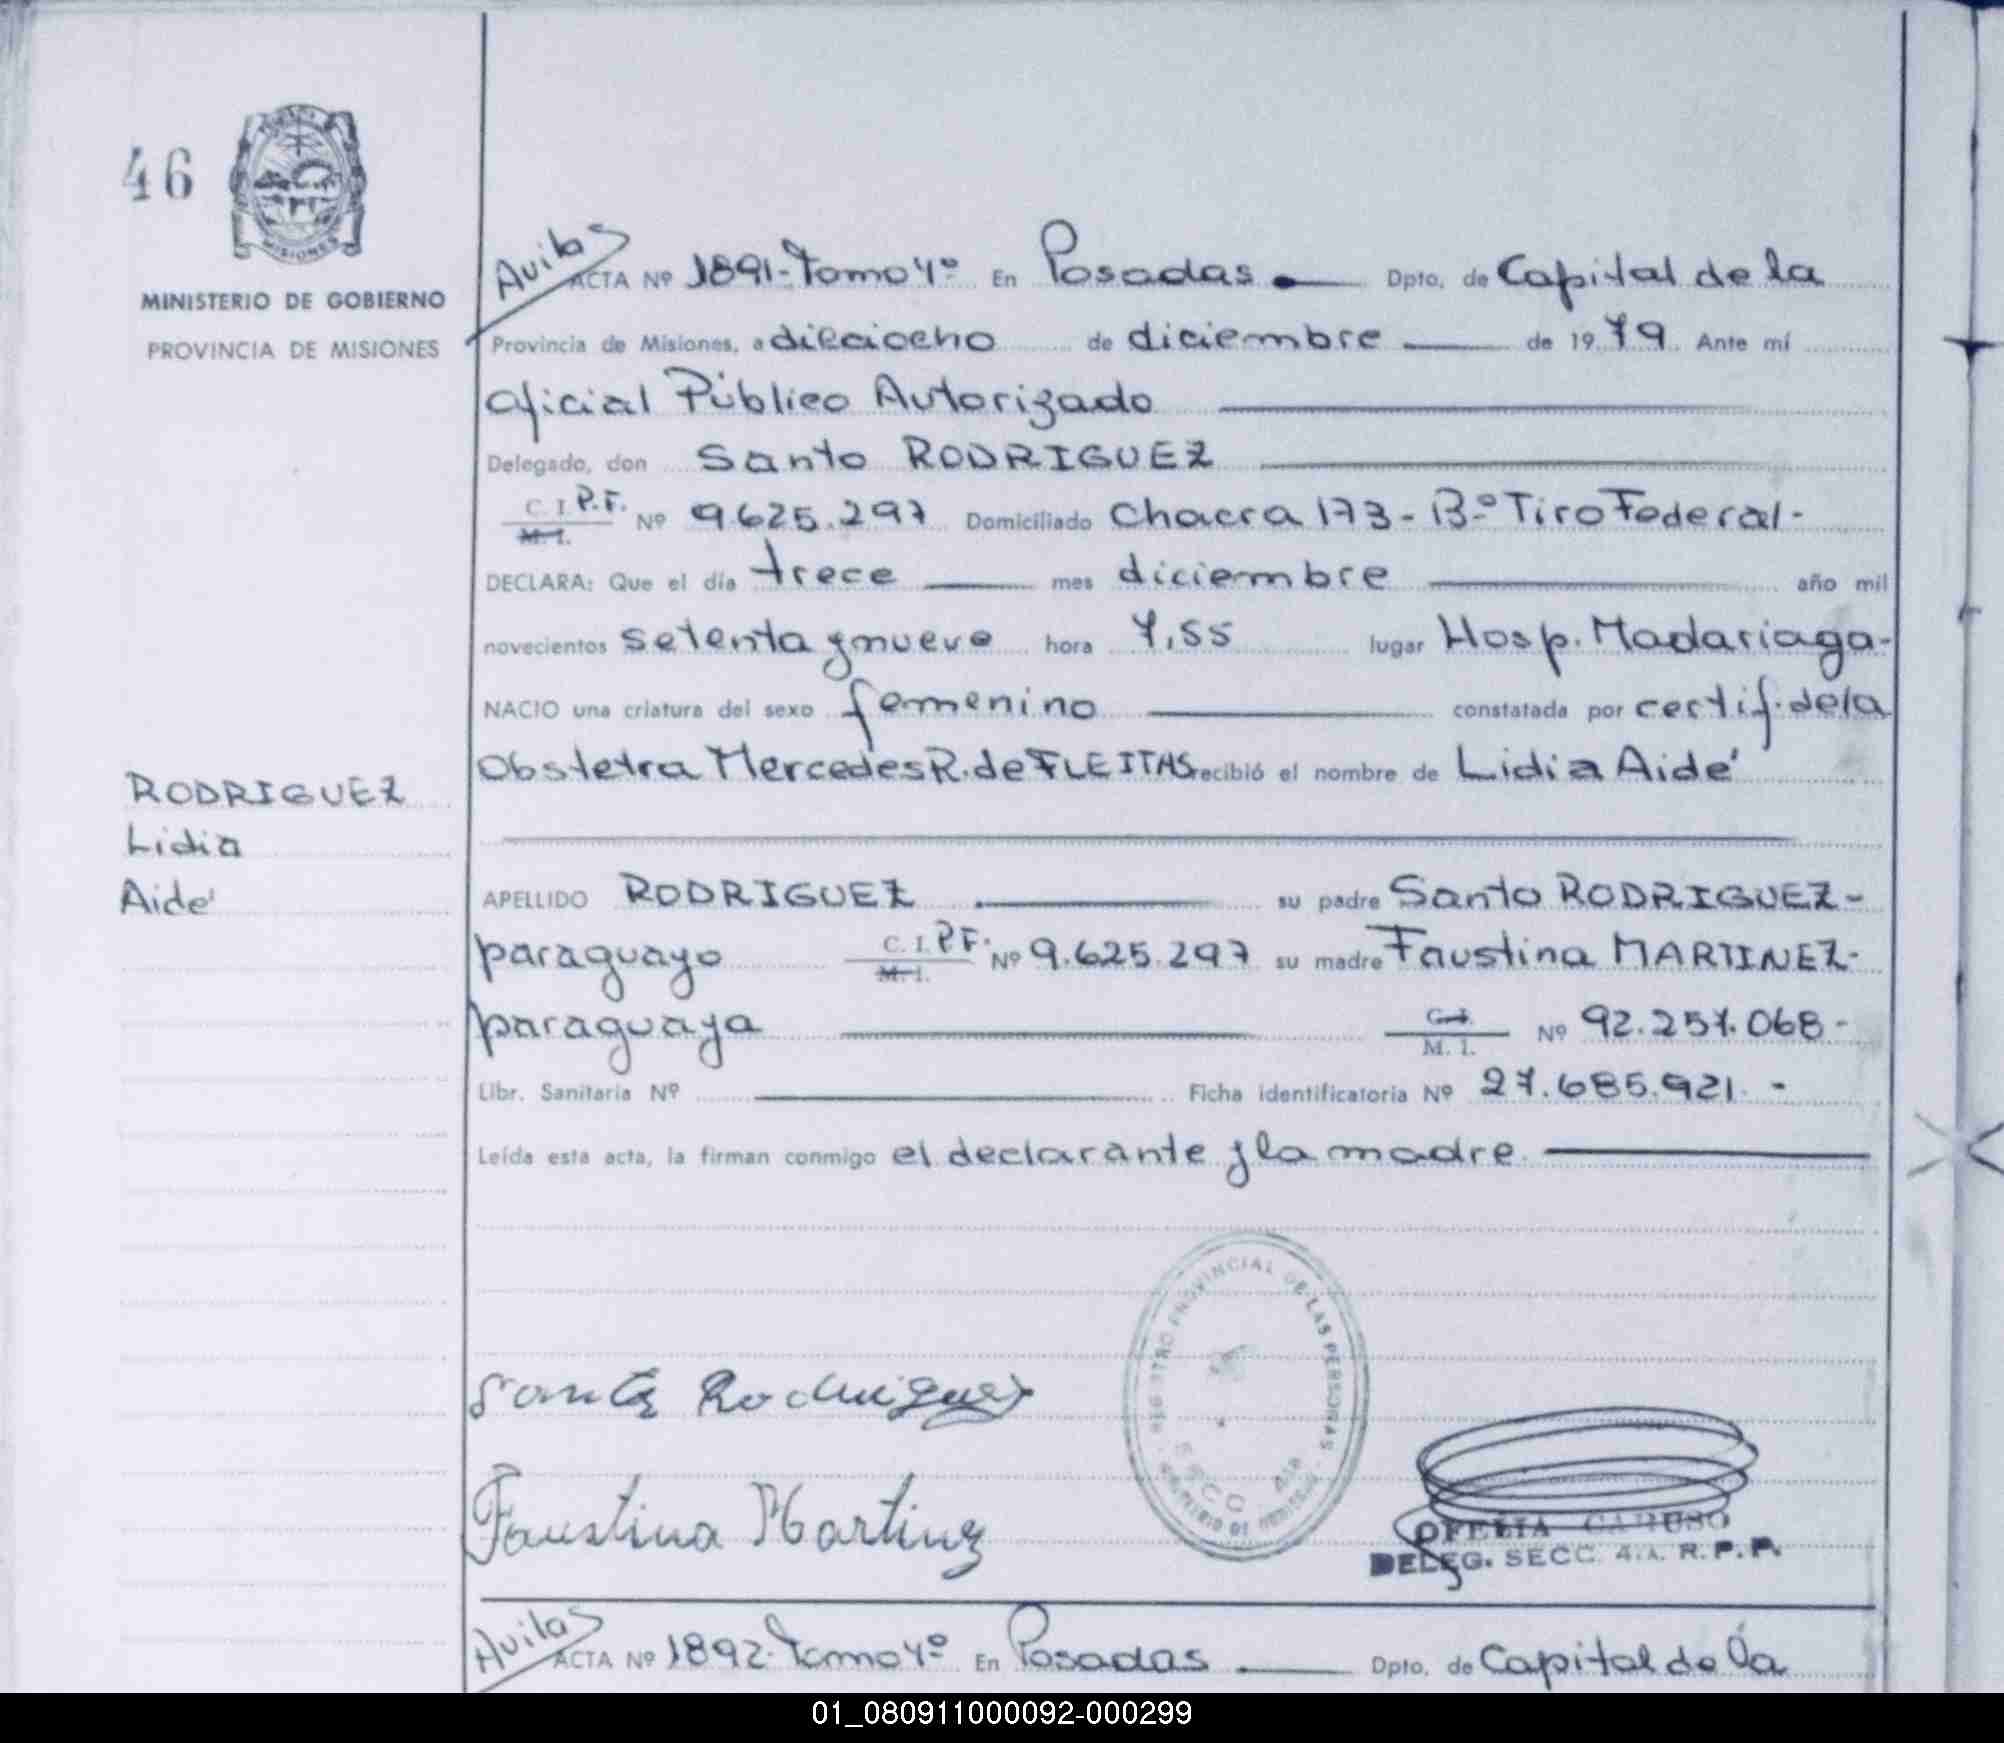 46
MISIONES
MINISTERIO DE GOBIERNO
PROVINCIA DE MISIONES
Avilas
ACTA Nº 1891-Tomo 4º En Posadas Dpto. de Capital de la
Provincia de Misiones, a dieciocho de diciembre de 1979 Ante mí
Oficial Público Autorizado
Delegado, don Santo RODRIGUEZ
C. I. P.F. M. I. Nº 9.625.297 Domiciliado Chacra 173-Bº Tiro Federal-
DECLARA: Que el día trece mes diciembre año mil
novecientos setenta y nueve hora 7,55 lugar Hosp. Madariaga-
NACIO una criatura del sexo femenino constatada por certif. de la
Obstetra Mercedes R. de FLEITAS recibió el nombre de Lidia Aidé
RODRIGUEZ
Lidia
Aidé
APELLIDO RODRIGUEZ su padre Santo RODRIGUEZ-
paraguayo C. I. P.F. M. I. Nº 9.625.297 su madre Faustina MARTINEZ-
paraguaya C. I. M. I. Nº 92.257.068-
Libr. Sanitaria Nº Ficha identificatoria Nº 27.685.921.-
Leída esta acta, la firman conmigo el declarante y la madre
REGISTRO PROVINCIAL DE LAS PERSONAS
SECC. 4ta
MINISTERIO DE GOBIERNO
Santo Rodriguez
Faustina Martinez
OFELIA CARUSO
DELEG. SECC. 4.A. R.P.P.
Avilas
ACTA Nº 1892-Tomo 4º En Posadas Dpto. de Capital de la
01_080911000092-000299